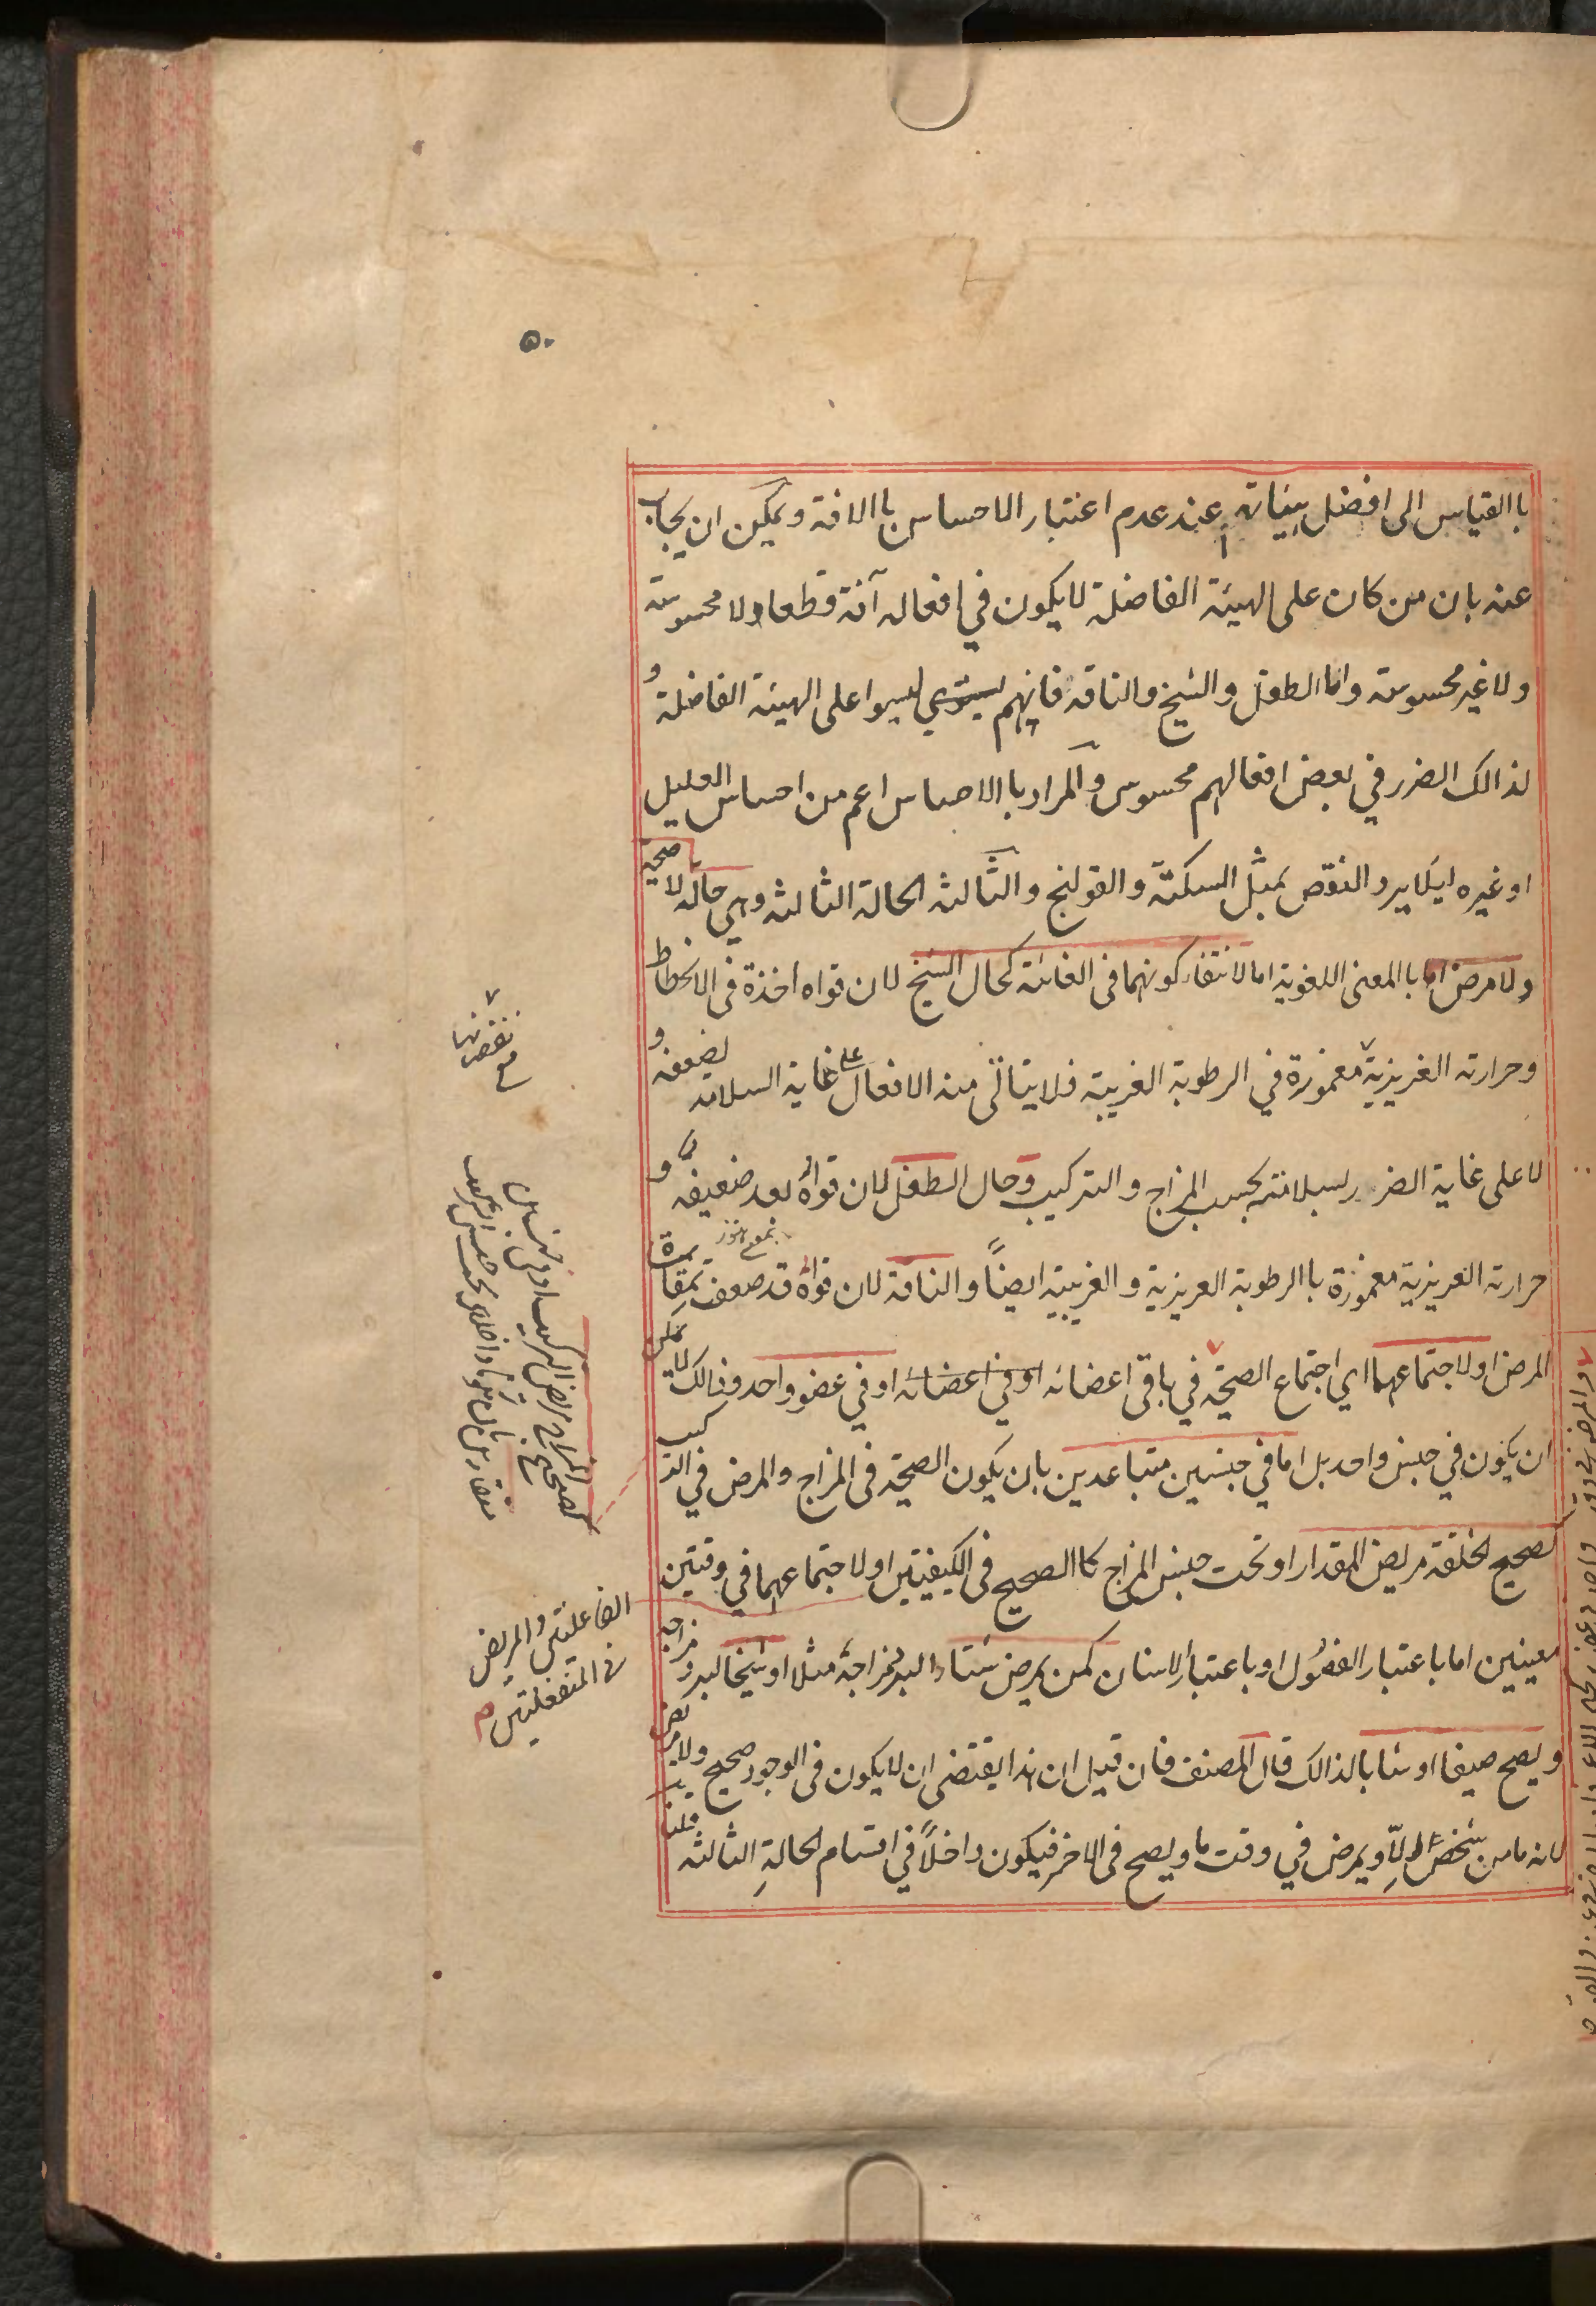 ٥٠
باالقياس الى افضل هيئاته عند عدم اعتبار الاحساس باالافة ويمكن ان يجاب
عنه بان من كان على الهيئة الفاضلة لايكون في افعاله آفة قطعا ولا محسوسة
ولاغير محسوسة واما الطفل والشيخ والناقه فانهم ليسوا على الهيئة الفاضلة و
لذالك الضرر في بعض افعالهم محسوس والمراد باالاحساس اعم من احساس العليل
او غيره ليلايرد النقص بمثل السكتة والقولنج والثالثه الحالة الثالثه وهي حالة لا صحية
ولامرض اما باالمعنى اللغوية اما لانتفاء كونهما في الغائة كحال الشيخ لان قواه اخذة في الانحطاط
وحرارته الغريزية مغمورة في الرطوبة الغريبة فلا يتأتى منه الافعال على غاية السلامة لضعفه و
لا على غاية الضرر لسلامته بحسب المزاج والتركيب وحال الطفل لان قواه بعد ضعيفة و
حرارته الغريزية مغمورة باالرطوبة الغريزية والغريبية ايضاً والناقة لان قواه قد ضعفت بمقاساة
المرض اولاجتماعهما اي اجتماع الصحة في باقى اعضائه اوفي اعضائه اوفي عضو واحد وذالك لايمكن
ان يكون في جنس واحد بل اما في جنسين متباعدين بان يكون الصحة فى المزاج والمرض في التركيب
لصحيح الخلقة مريض المقدار او تحت جنس المزاج كاالصحيح في الكيفيتين اولاجتماعهما في وقتين
معينين اما باعتبار الفصول او باعتبار الاسنان كمن يمرض شتاء البرد مزاجه مثلا او شيخا لبرد مزاجه
ويصح صيفا او شابا لذالك قال المصنف فان قيل ان هذا يقتضى ان لايكون فى الوجود صحيح ولا مريض
لانه ما من شخص الاّ ويمرض في وقت ما ويصح فى الاخر فيكون داخلاً في اقسام الحالةِ الثالثه قلنا
الفاعليتين والمريض
في المنفعليتين م